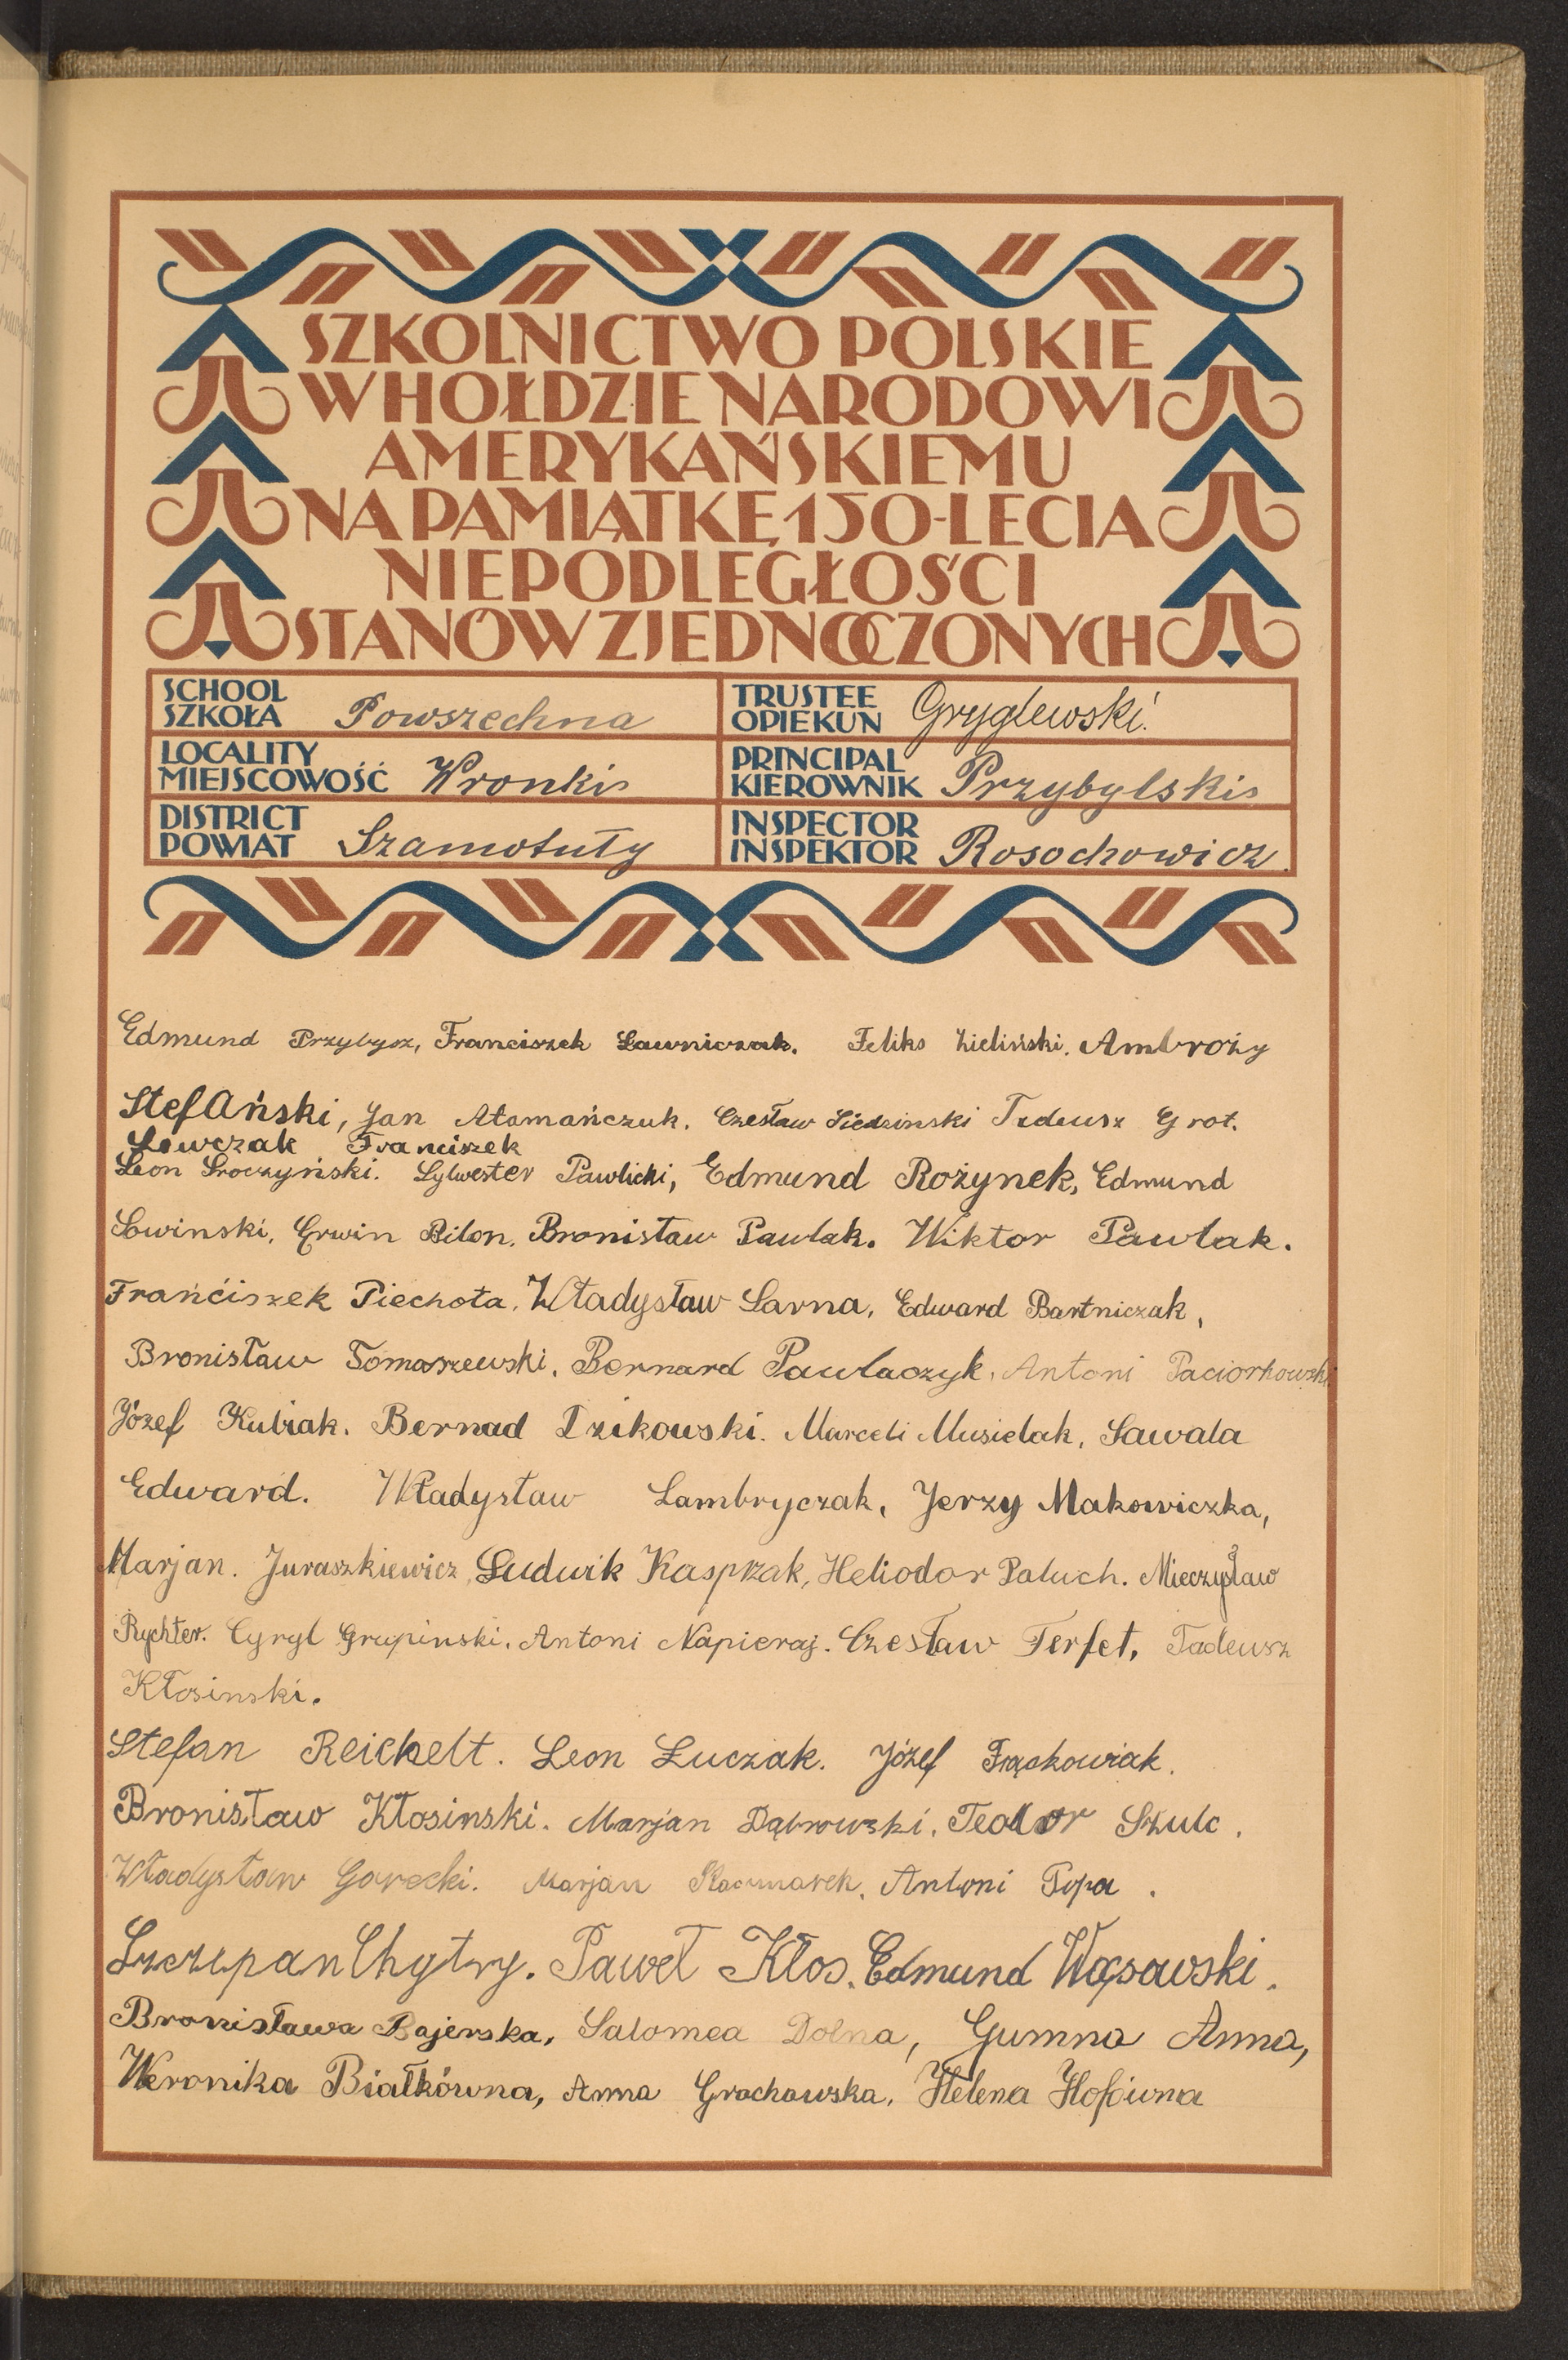 SZKOLNICTWO POLSKIE
W HOŁDZIE NARODOWI
AMERYKAŃSKIEMU
NA PAMIĄTKĘ 150-LECIA
NIEPODLEGŁOŚCI
STANÓW ZJEDNOCZONYCH
SCHOOL
SZKOŁA Powszechna
TRUSTEE
OPIEKUN Gryglewski.
LOCALITY
MIEJSCOWOŚĆ Wronki
PRINCIPAL
KIEROWNIK Przybylski
DISTRICT
POWIAT Szamotuły
INSPECTOR
INSPEKTOR Rosochowicz.
Edmund Przybysz, Franciszek Ławniczak. Feliks Zieliński. Ambroży
StefAński, Jan Atamańczuk. Czesław Siedzinski Tadeusz Grot.
Lewczak Franciszek
Leon Sroczyński. Sylwester Pawlicki, Edmund Rożynek, Edmund
Słwinski, Erwin Bilon. Bronisław Pawlak. Wiktor Pawlak.
Frańćiszek Piechota. Władysław Sarna, Edward Bartniczak,
Bronisław Tomaszewski. Bernard Pawlaczyk. Antoni Paciorkowski
Józef Kubiak. Bernad Dzikowski. Marceli Musielak, Sawala
Edward. Władysław Lambryczak, Jerzy Makowiczka,
Marjan. Juraszkiewicz Ludwik Kasprzak, Heliodor Paluch. Mieczysław
Rychter. Cyryl Grupinski. Antoni Napieraj. Czesław Terfet, Tadeusz
Kłosinski.
Stefan Reichelt. Leon Łuczak. Józef Frąckowiak.
Bronisław Kłosinski. Marjan Dąbrowski. Teodor Szulc.
Władysław Gorecki. Marjan Kaczmarek. Antoni Popa.
Szczepan Chytry. Paweł Kłos. Edmund Wąsowski.
Bronisława Bajerska, Salomea Dolna, Gumna Anna,
Weronika Białkówna, Anna Grochowska, Helena Hofówna